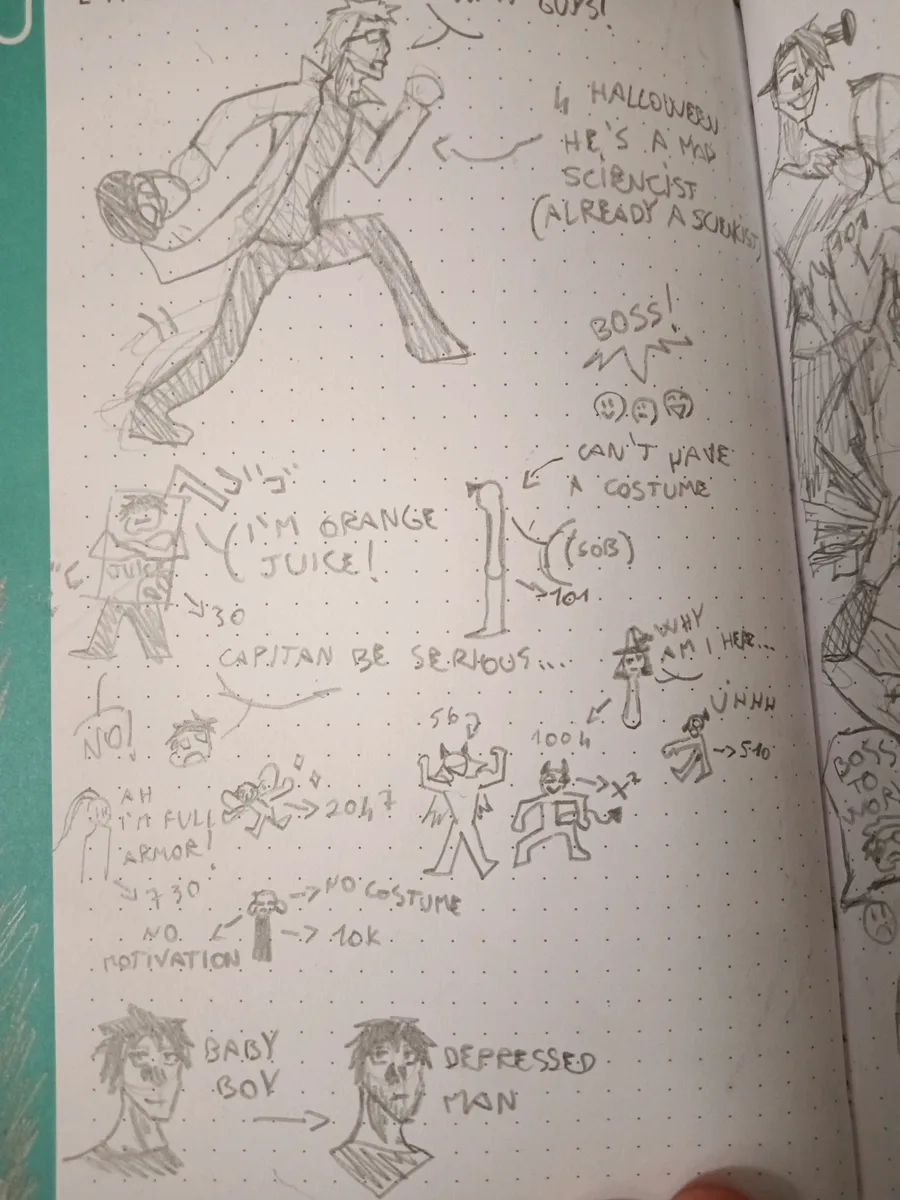 GUYS!
↳ HALLOWEEN
HE'S A MAD
SCIENCIST
(ALREADY A SCIENCIST)
101
BOSS!
CAN'T HAVE
A COSTUME
I'M ORANGE
JUICE!
(SOB)
JUICE
→ 101
→ 30
CAPITAN BE SERIOUS...
WHY
AM I HERE...
NO!
UHHH
56
1004
→ 510
→ X²
AH
I'M FULL
ARMOR!
→ 2047
→ 730
→ NO COSTUME
NO
MOTIVATION
→ 10K
BOSS
TO
WOR
BABY
BOY
DEPRESSED
MAN